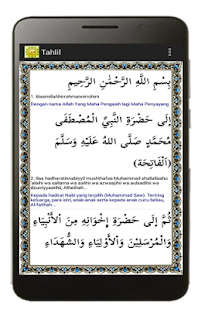 Tahlil
بِسْمِ اللَّهِ الرَّحْمٰنِ الرَّحِيْمِ
1. Bissmillahhirrahmanirrohim
Dengan nama Allah Yang Maha Pengasih lagi Maha Penyayang
إِلَى حَضْرَةِ النَّبِيِّ الْمُصْطَفَى
مُحَمَّدٍ صَلَّى اللهُ عَلَيْهِ وَسَلَّمَ
(اَلْفَاتِحَةْ)
2. Ilaa hadharatinnabiyyil musthhafaa Muhammad shallallaahu
'alaihi wa sallama wa aalihii wa azwaajihii wa aulaadihii wa
dzurriyyaatihii, Alfatihah...
Kepada hadirat Nabi yang terpilih (Muhammad Saw). Teriring
keluarga, para istri, anak-anak serta kepada anak cucu beliau,
Alfatihah...
ثُمَّ إِلَى حَضْرَةِ إِخْوَانِهِ مِنَ الْأَنْبِيَاءِ
وَالْمُرْسَلِيْنَ وَالْأَوْلِيَاءِ وَالشُّهَدَاءِ